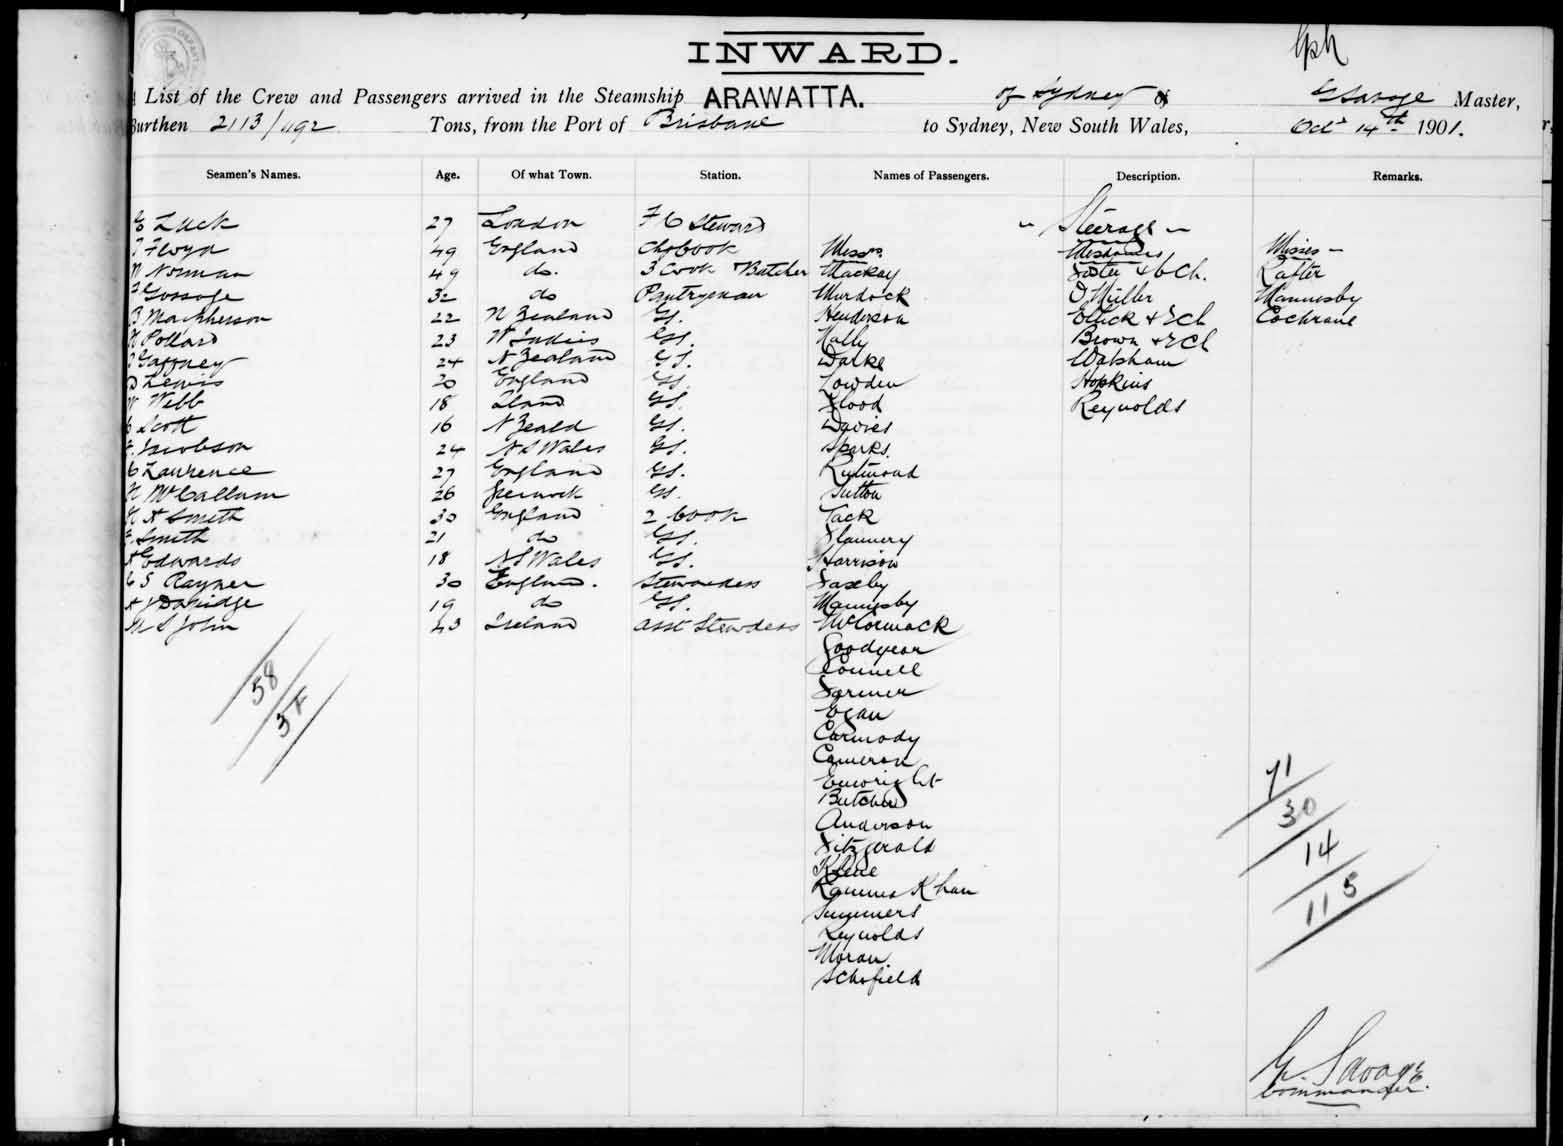 INWARD.
List of the Crew and Passengers arrived in the Steamship ARAWATTA. of Sydney G Savage Master,
Burthen 2113/1192 Tons, from the Port of Brisbane to Sydney, New South Wales, Oct 14th 1901.
Seamen's Names. Age. Of what Town. Station. Names of Passengers. Description. Remarks.
Luck 27 London F C Steward - Steerage -
Floyd 49 England Ch Cook Messrs Mesdames Misses -
Norman 49 do. 3 Cook Butcher Mackay Foster & 6 Ch. Lafter
Gossage 32 do Pantryman Murdock O'Muller Mannesby
MacPherson 22 N Zealand GS. Henderson Ellick & 2 Ch Cochrane
Pollard 23 W Indies GS. Nally Brown & 2 Ch
Gaffney 24 N Zealand GS. Darke Walsham
Lewis 20 England GS. Lowden Hopkins
Webb 18 GS. Flood Reynolds
Scott 16 N Zeald GS. Davies
Jacobson 24 N S Wales GS. Sparks.
Lawrence 27 England GS.
McCallum 26 GS. Sutton
A Smith 30 England 2 Cook Tack
Smith 21 do GS. Flannery
Edwards 18 N S Wales GS. Harrison
S Rayner 30 England. Stewardess Saxby
19 do GS. Mannesby
St John 43 Ireland Asst Stewdess McCormack
Goodyear
Connell
Farmer
Egan
Carmody
Cameron
Enwright
Butcher
Anderson
Fitzgerald
Klene
Khan
Summers
Reynolds
Moran
Schofield
58
38
71
30
14
115
G. Savage
Commander.